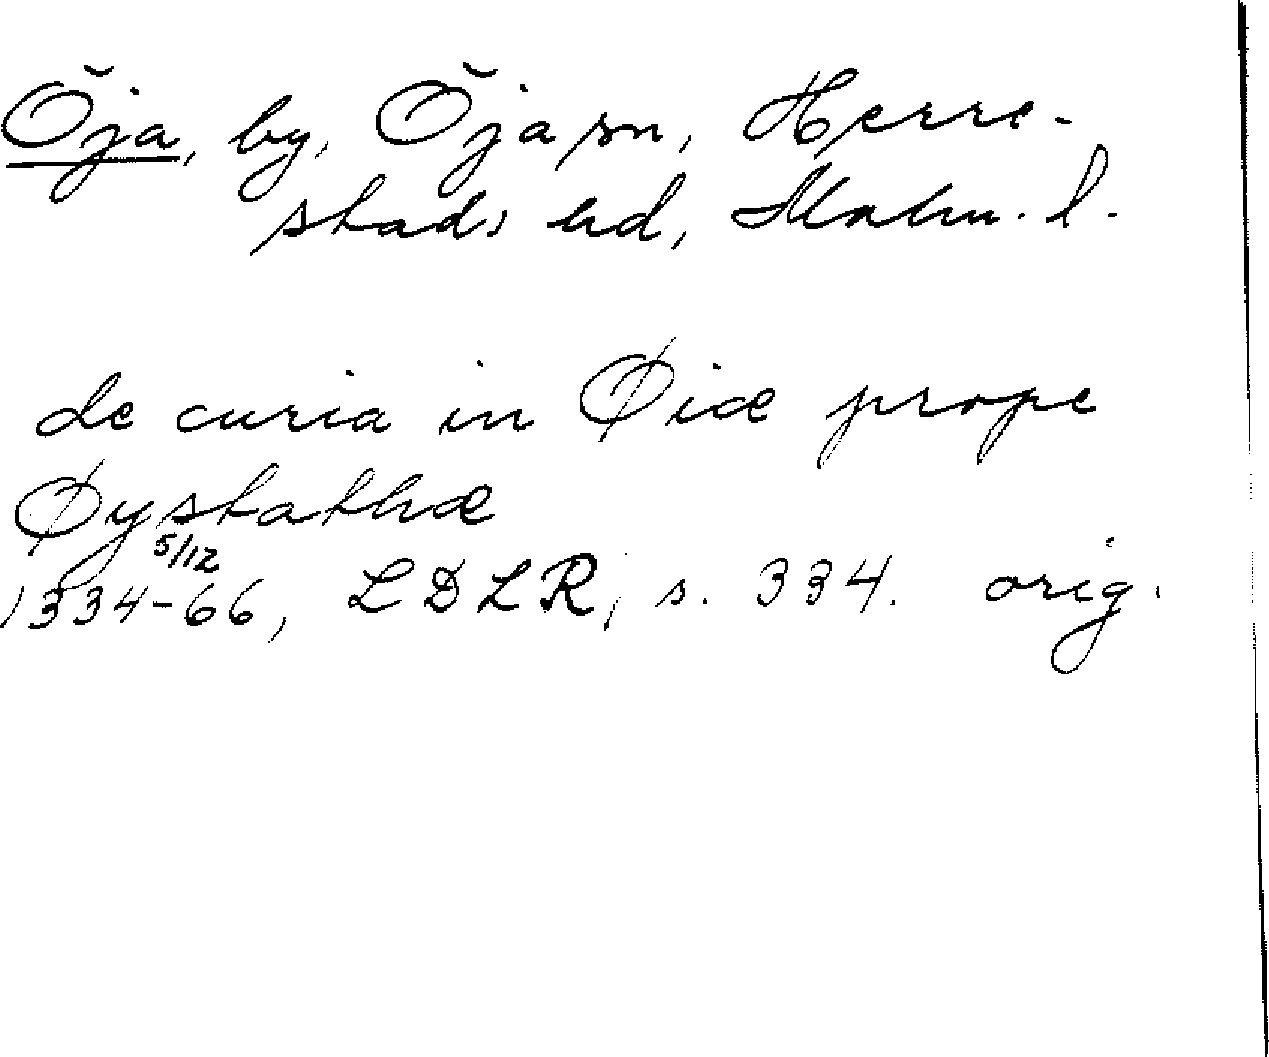 Öja, by, Öja sn, Herre-
stads hd, Malm. l.
de curia in Øiæ prope
Øystathæ
5/12
1334-66, LDLR, s. 334. orig.